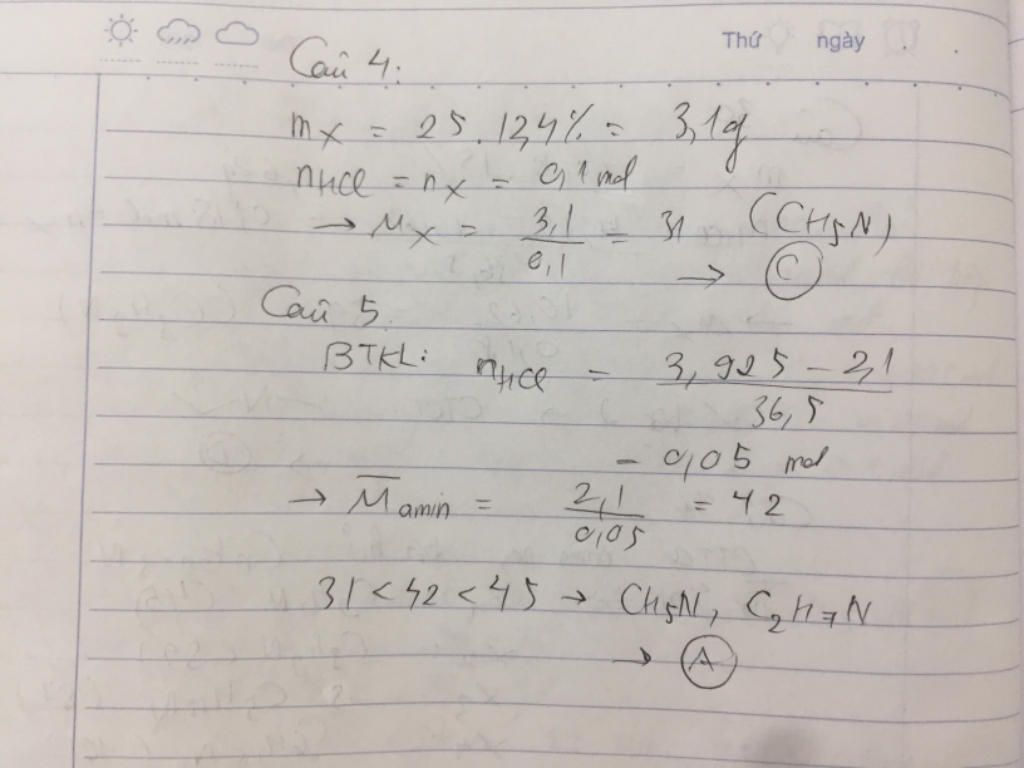 Thứ ngày
Câu 4:
mX = 25.12,4% = 3,1g
nHCl = nX = 0,1 mol
→ MX = 3,1 / 0,1 = 31 (CH5N)
→ C
Câu 5.
BTKL: nHCl = 3,925 - 2,1 / 36,5
= 0,05 mol
→ M̅amin = 2,1 / 0,05 = 42
31 < 42 < 45 → CH5N, C2H7N
→ A